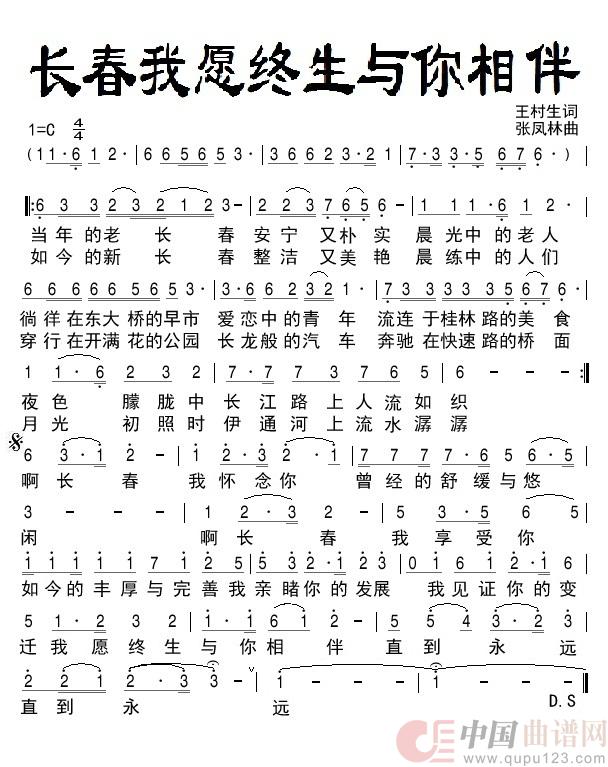 长春我愿终生与你相伴
王村生词
1=C 4/4
张凤林曲
(1 1·6 1 2·| 6 6 5 6 5 3·| 3 6 6 2 3·2 1| 7·3 3·5 6 7 6·)|
‖:6 3 3 2 3 2 1 2 3-| 2 2 2 3 7 6 5 6-| 1 1 1·6 1 2-|
当年的老长春安宁又朴实晨光中的老人
如今的新长春整洁又美艳晨练中的人们
6 6 6 5 6 5 3 5 3| 3·6 6 2 3 2 1·| 7 3 3 3 3 5 6 7 5|
徜徉在东大桥的早市爱恋中的青年流连于桂林路的美食
穿行在开满花的公园长龙般的汽车奔驰在快速路的桥面
1 1·6 3 2| 7·7 7 3 7 6 5| 6 - - -:‖
夜色朦胧中长江路上人流如织
月光初照时伊通河上流水潺潺
6 3·1 2-| 1·2 3 2·1| 7 7 7 7 6 5 6 7|
啊长春我怀念你曾经的舒缓与悠
3 - - -| 1 2·3 2 3·5 6 5|
闲啊长春我享受你
1 1 1 1 7 1 2| 5 5 3 2·1 2 3| 0 1 6 1 2 1 6|
如今的丰厚与完善我亲睹你的发展我见证你的变
5 1·2 3| 2·3 2 1 6 1·| 5 5 5 4 3·2|
迁我愿终生与你相伴直到永远
2 2 1 2 3 2 1 - - -| 1 - - -‖
直到永远
D.S
中国曲谱网
www.qupu123.com